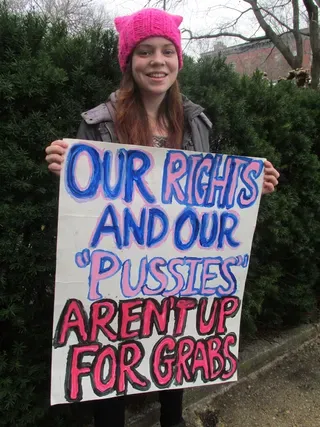 OUR RIGHTS
AND OUR
"PUSSIES"
AREN'T UP
FOR GRABS